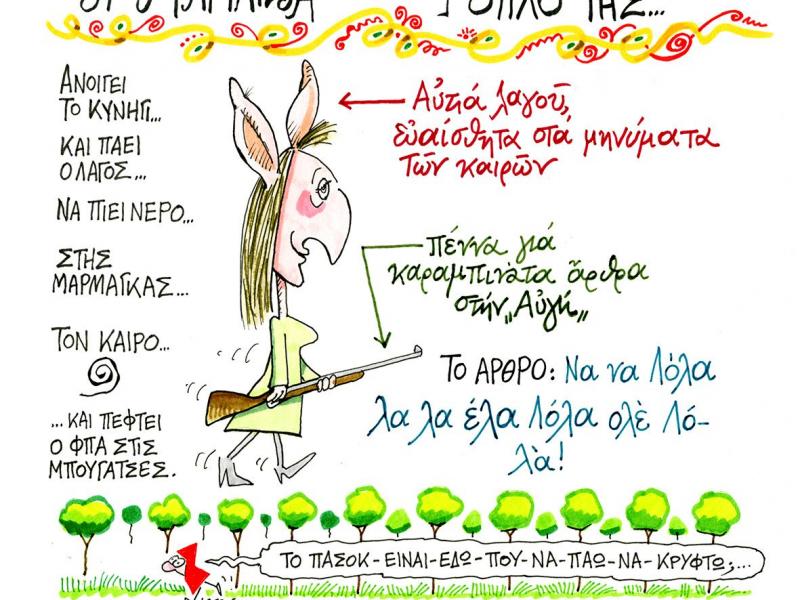 ΤΗΣ...
ΑΝΟΙΓΕΙ
ΤΟ ΚΥΝΗΓΙ...
ΚΑΙ ΠΑΕΙ
Ο ΛΑΓΟΣ...
ΝΑ ΠΙΕΙ ΝΕΡΟ...
ΣΤΗΣ
ΜΑΡΜΑΓΚΑΣ...
ΤΟΝ ΚΑΙΡΟ...
...ΚΑΙ ΠΕΦΤΕΙ
Ο ΦΠΑ ΣΤΙΣ
ΜΠΟΥΓΑΤΣΕΣ.
Αὐτιά λαγοῦ,
εὐαίσθητα στα μηνύματα
τῶν καιρῶν
πέννα γιά
καραμπινᾶτα ἄρθρα
στήν „Αὐγή„
ΤΟ ΑΡΘΡΟ: Να να Λόλα
λα λα έλα Λόλα ολὲ Λό-
λὰ!
ΤΟ ΠΑΣΟΚ-ΕΙΝΑΙ-ΕΔΩ-ΠΟΥ-ΝΑ-ΠΑΩ-ΝΑ-ΚΡΥΦΤΩ;...